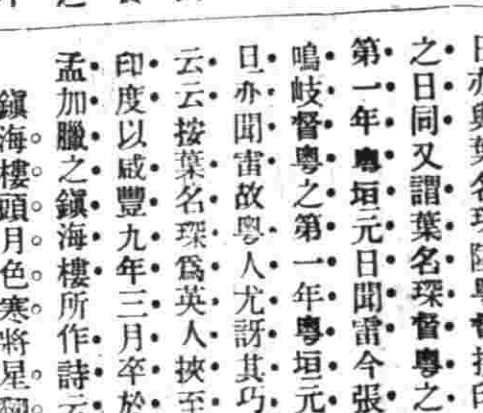 日亦與葉名琛
之日同又謂葉名琛督粵之
第一年粵垣元日聞雷今張
鳴岐督粵之第一年粵垣元
旦亦聞雷故粵人尤訝其巧
云云按葉名琛爲英人挾至
印度以咸豐九年三月卒於
孟加臘之鎭海樓所作詩云
鎭海樓頭月色寒將星